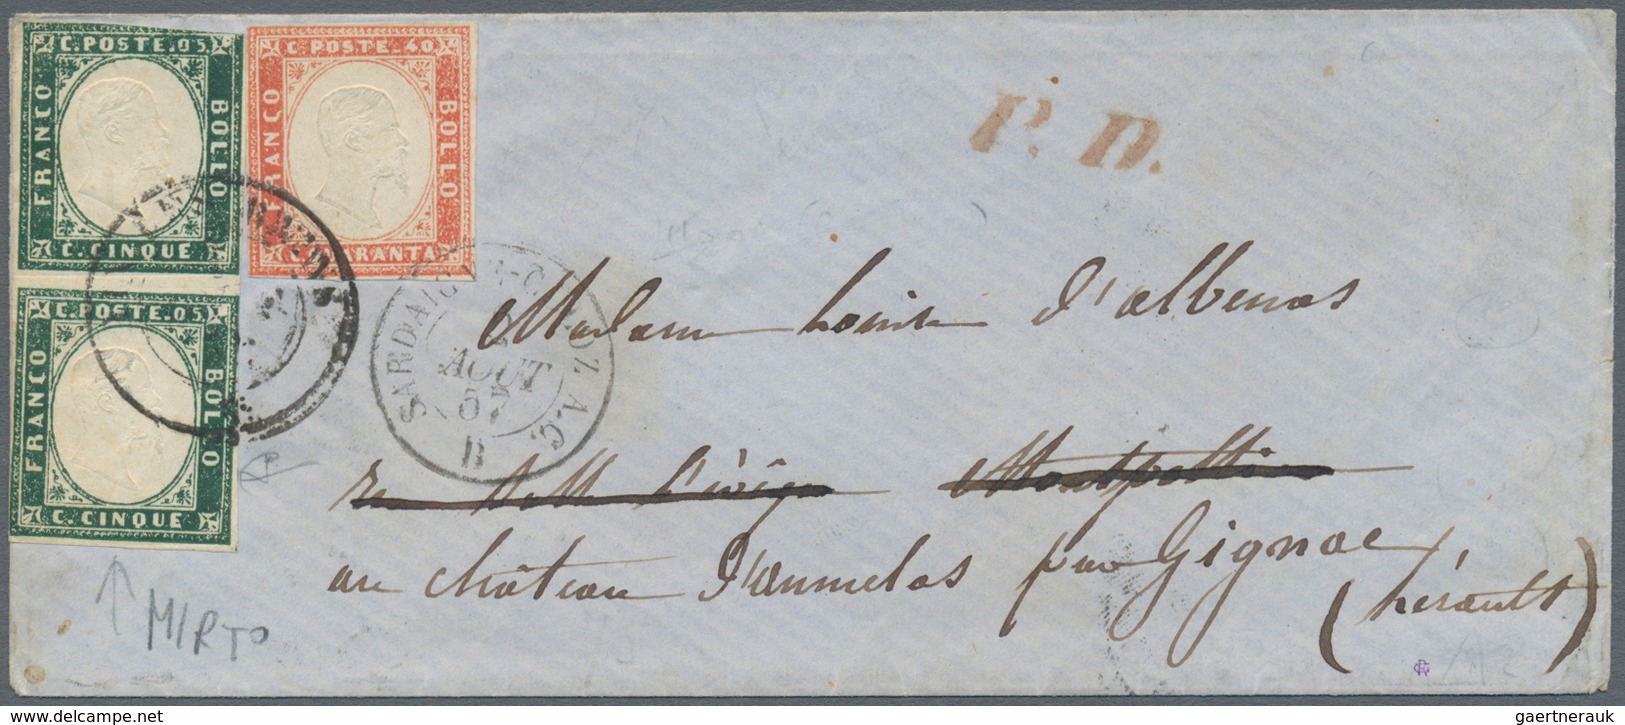 C. POSTE. 05
FRANCO
BOLLO
C. CINQUE
C. POSTE. 40
FRANCO
BOLLO
C. QUARANTA
C. POSTE. 05
FRANCO
BOLLO
C. CINQUE
P. D.
SARDAIGNE A.C.
AOUT
57
B
Madame Louise d'albenas
Montpellier
au château d'aumelas par Gignac
(hérault)
MIRTO
gaertnerauk